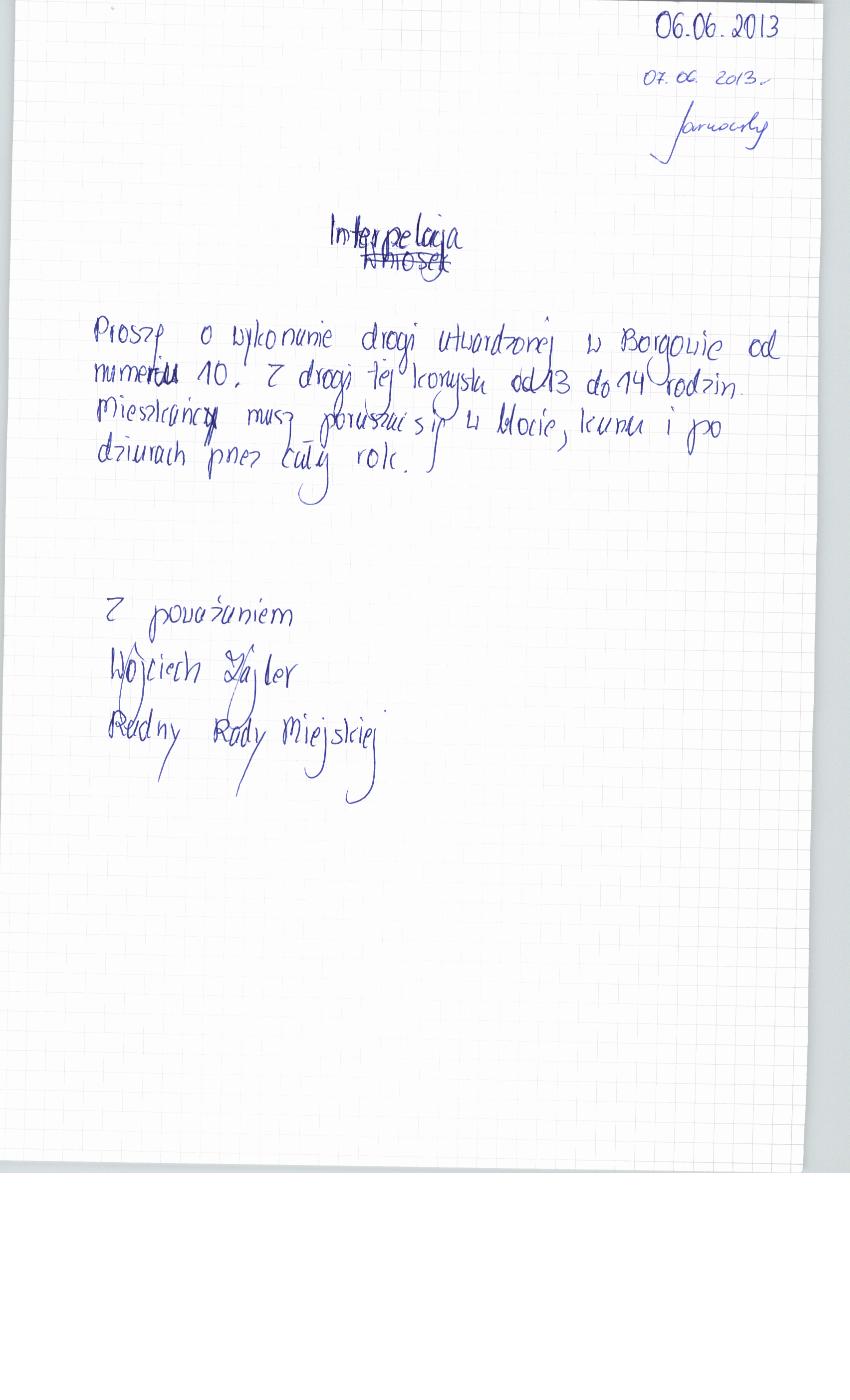 06.06.2013
07.06.2013r.
Interpelacja
Wniosek
Proszę o wykonanie drogi utwardzonej w Borgowie od
numeru 10. Z drogi tej korzysta od 13 do 14 rodzin.
Mieszkańcy muszą poruszać się w błocie, kurzu i po
dziurach przez cały rok.
Z poważaniem
Wojciech Zajler
Radny Rady Miejskiej